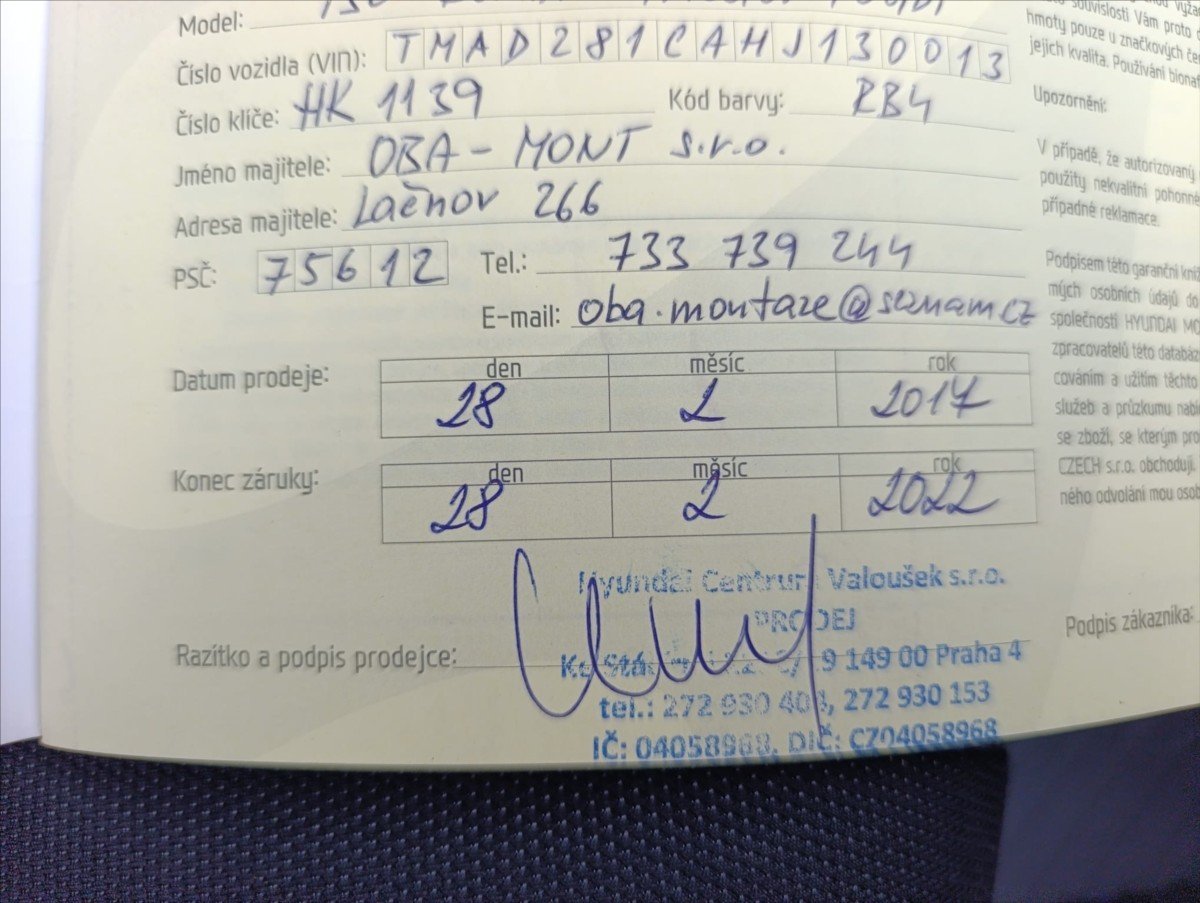 Model:
Číslo vozidla (VIN): TMAD281CAHJ130013
Číslo klíče: HK 1139 Kód barvy: RB4
Jméno majitele: OBA - MONT s.r.o.
Adresa majitele: Lačnov 266
PSČ: 75612 Tel.: 733 739 244
E-mail: oba.montaze@seznam.cz
Datum prodeje: den měsíc rok
28 2 2017
Konec záruky: den měsíc rok
28 2 2022
Hyundai Centrum Valoušek s.r.o.
PRODEJ
Razítko a podpis prodejce:
149 00 Praha 4
tel.: 272 930 403, 272 930 153
IČ: 04058968, DIČ: CZ04058968
souvislosti Vám proto
hmoty pouze u značkových
jejich kvalita. Používání
Upozornění:
V případě, že autorizovaný
použity nekvalitní pohonné
případné reklamace.
Podpisem této garanční
mých osobních údajů do
společnosti HYUNDAI
zpracovatelů této
cováním a užitím těchto
služeb a průzkumu
se zboží, se kterým
CZECH s.r.o. obchodují.
ného odvolání mou
Podpis zákazníka: